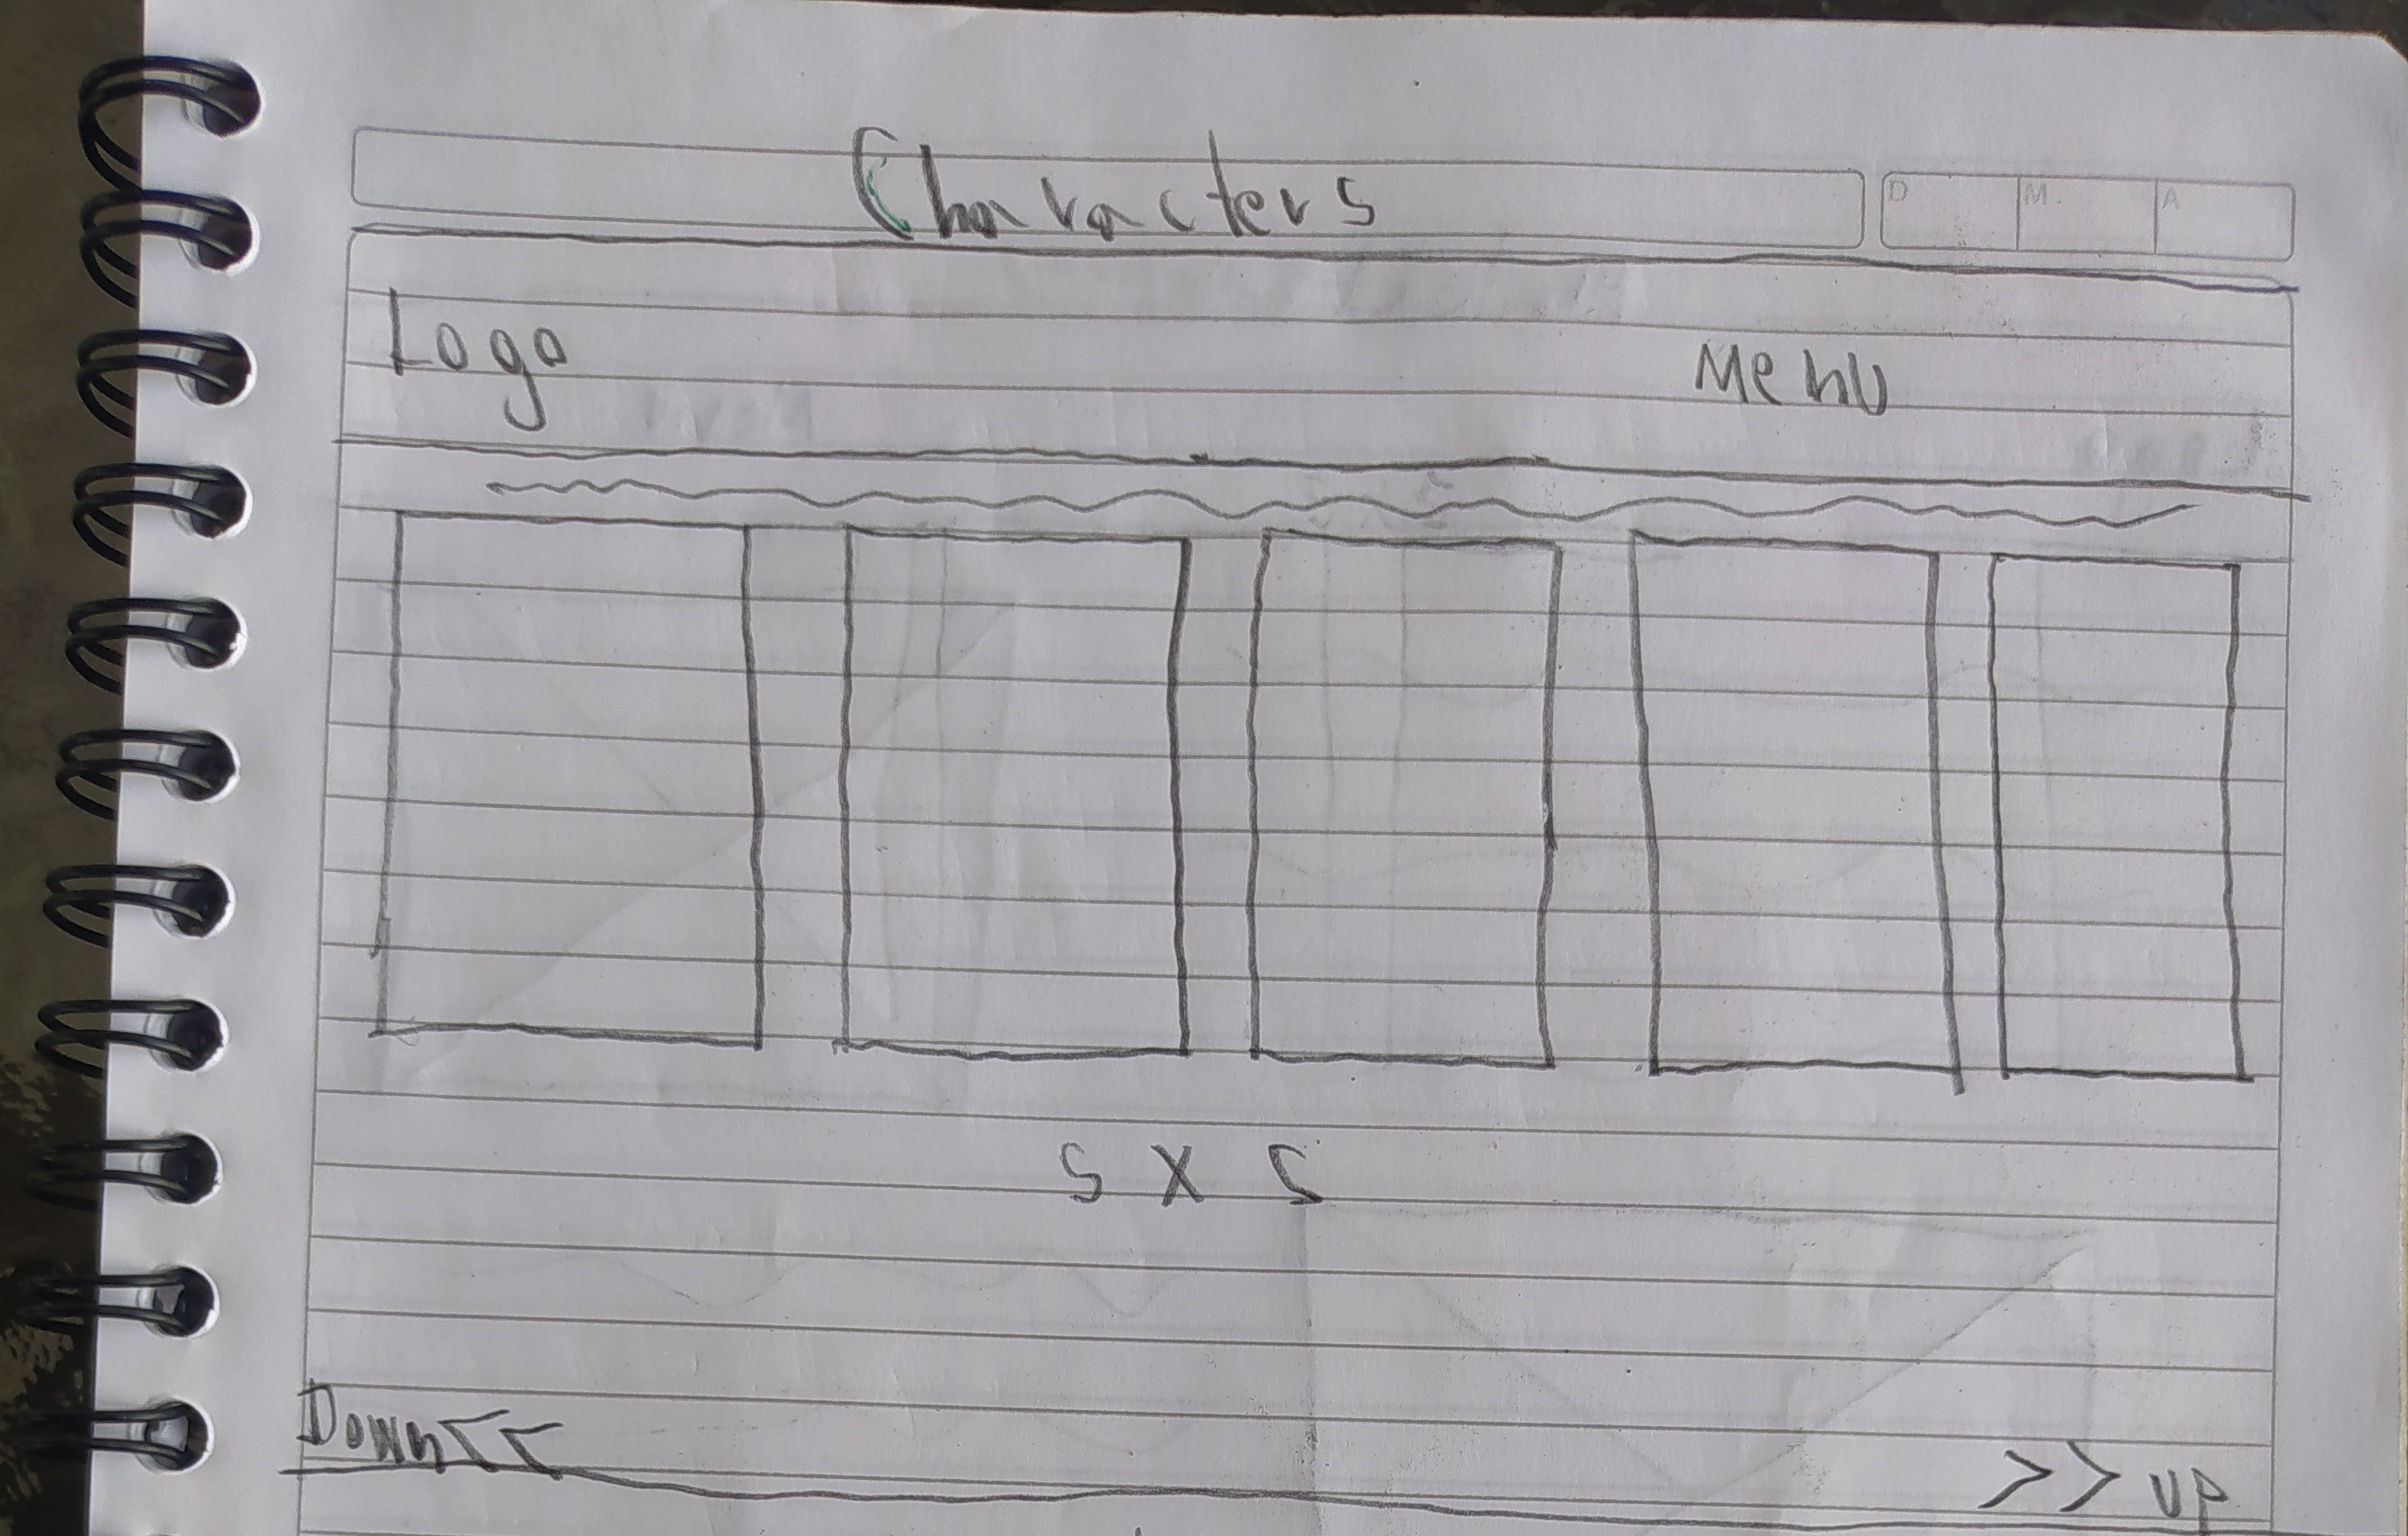 Characters
D M. A
Logo Menu
5 X 5
Down <<
>> up